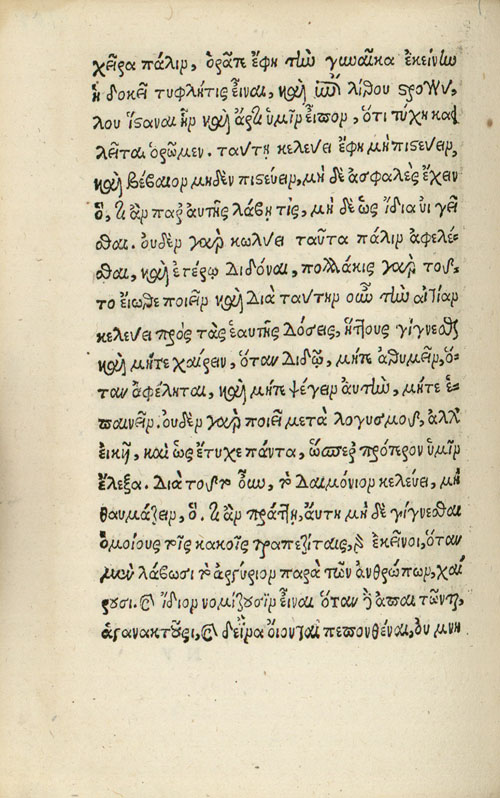 χεῖρα πάλιν, ὁρᾶτε ἔφη τὴν γυναῖκα ἐκείνην
ἣ δοκεῖ τυφλή τις εἶναι, καὶ ἐπὶ λίθου στρογγύ,
λου ἵσαναι ἦν καὶ ἄρτι ὑμῖν εἶπον, ὅτι τύχη κα
λεῖται ὁρῶμεν. ταύτῃ κελεύει ἔφη μὴ πιστεύειν,
καὶ βέβαιον μηδὲν πιστεύειν, μὴ δὲ ἀσφαλὲς ἔχειν
ὅ, τι ἂν παρ αὐτῆς λάβῃ τις, μὴ δὲ ὡς ἴδια ἡγεῖ
σθαι. οὐδὲν γὰρ κωλύει ταῦτα πάλιν ἀφελέ-
σθαι, καὶ ἑτέρῳ διδόναι, πολλάκις γὰρ τοῦ-
το εἴωθε ποιεῖν καὶ διὰ ταύτην οὖν τὴν αἰτίαν
κελεύει πρὸς τὰς ἑαυτῆς δόσεις, ἥττους γίγνεσθαι
καὶ μήτε χαίρειν, ὅταν διδῷ, μήτε ἀθυμεῖν, ὅ-
ταν ἀφέληται, καὶ μήτε ψέγειν αὐτὴν, μήτε ἐ-
παινεῖν. οὐδὲν γὰρ ποιεῖ μετὰ λογισμοῦ, ἀλλ
εἰκῆ, καὶ ὡς ἔτυχε πάντα, ὥσπερ πρότερον ὑμῖν
ἔλεξα. Διὰ τοῦτο οὖν, τὸ δαιμόνιον κελεύει, μὴ
θαυμάζειν, ὅ. τι ἂν πράττῃ, αὕτη μὴ δὲ γίγνεσθαι
ὁμοίους τοῖς κακοῖς τραπεζίταις, καὶ ἐκεῖνοι, ὅταν
μὲν λάβωσι τὸ ἀργύριον παρὰ τῶν ἀνθρώπων, χαί
ρουσι. καὶ ἴδιον νομίζουσιν εἶναι ὅταν ἢ ἀπαιτῶνται,
ἀγανακτοῦσι, καὶ δεινὰ οἴονται πεπονθέναι, οὐ μνη